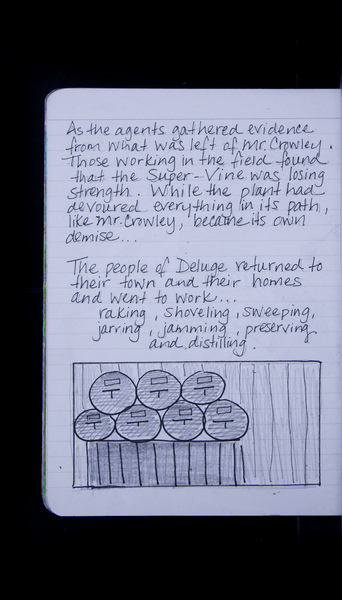 As the agents gathered evidence
from what was left of Mr. Crowley.
Those working in the field found
that the Super-Vine was losing
strength. While the plant had
devoured everything in its path,
like Mr. Crowley, became its own
demise...
The people of Deluge returned to
their town and their homes
and went to work...
raking, shoveling, sweeping,
jarring, jamming, preserving
and distilling.